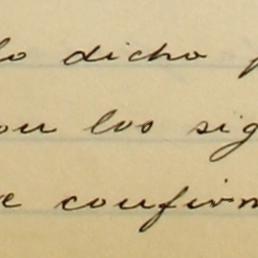 lo dicho p
con los sig
e confirm